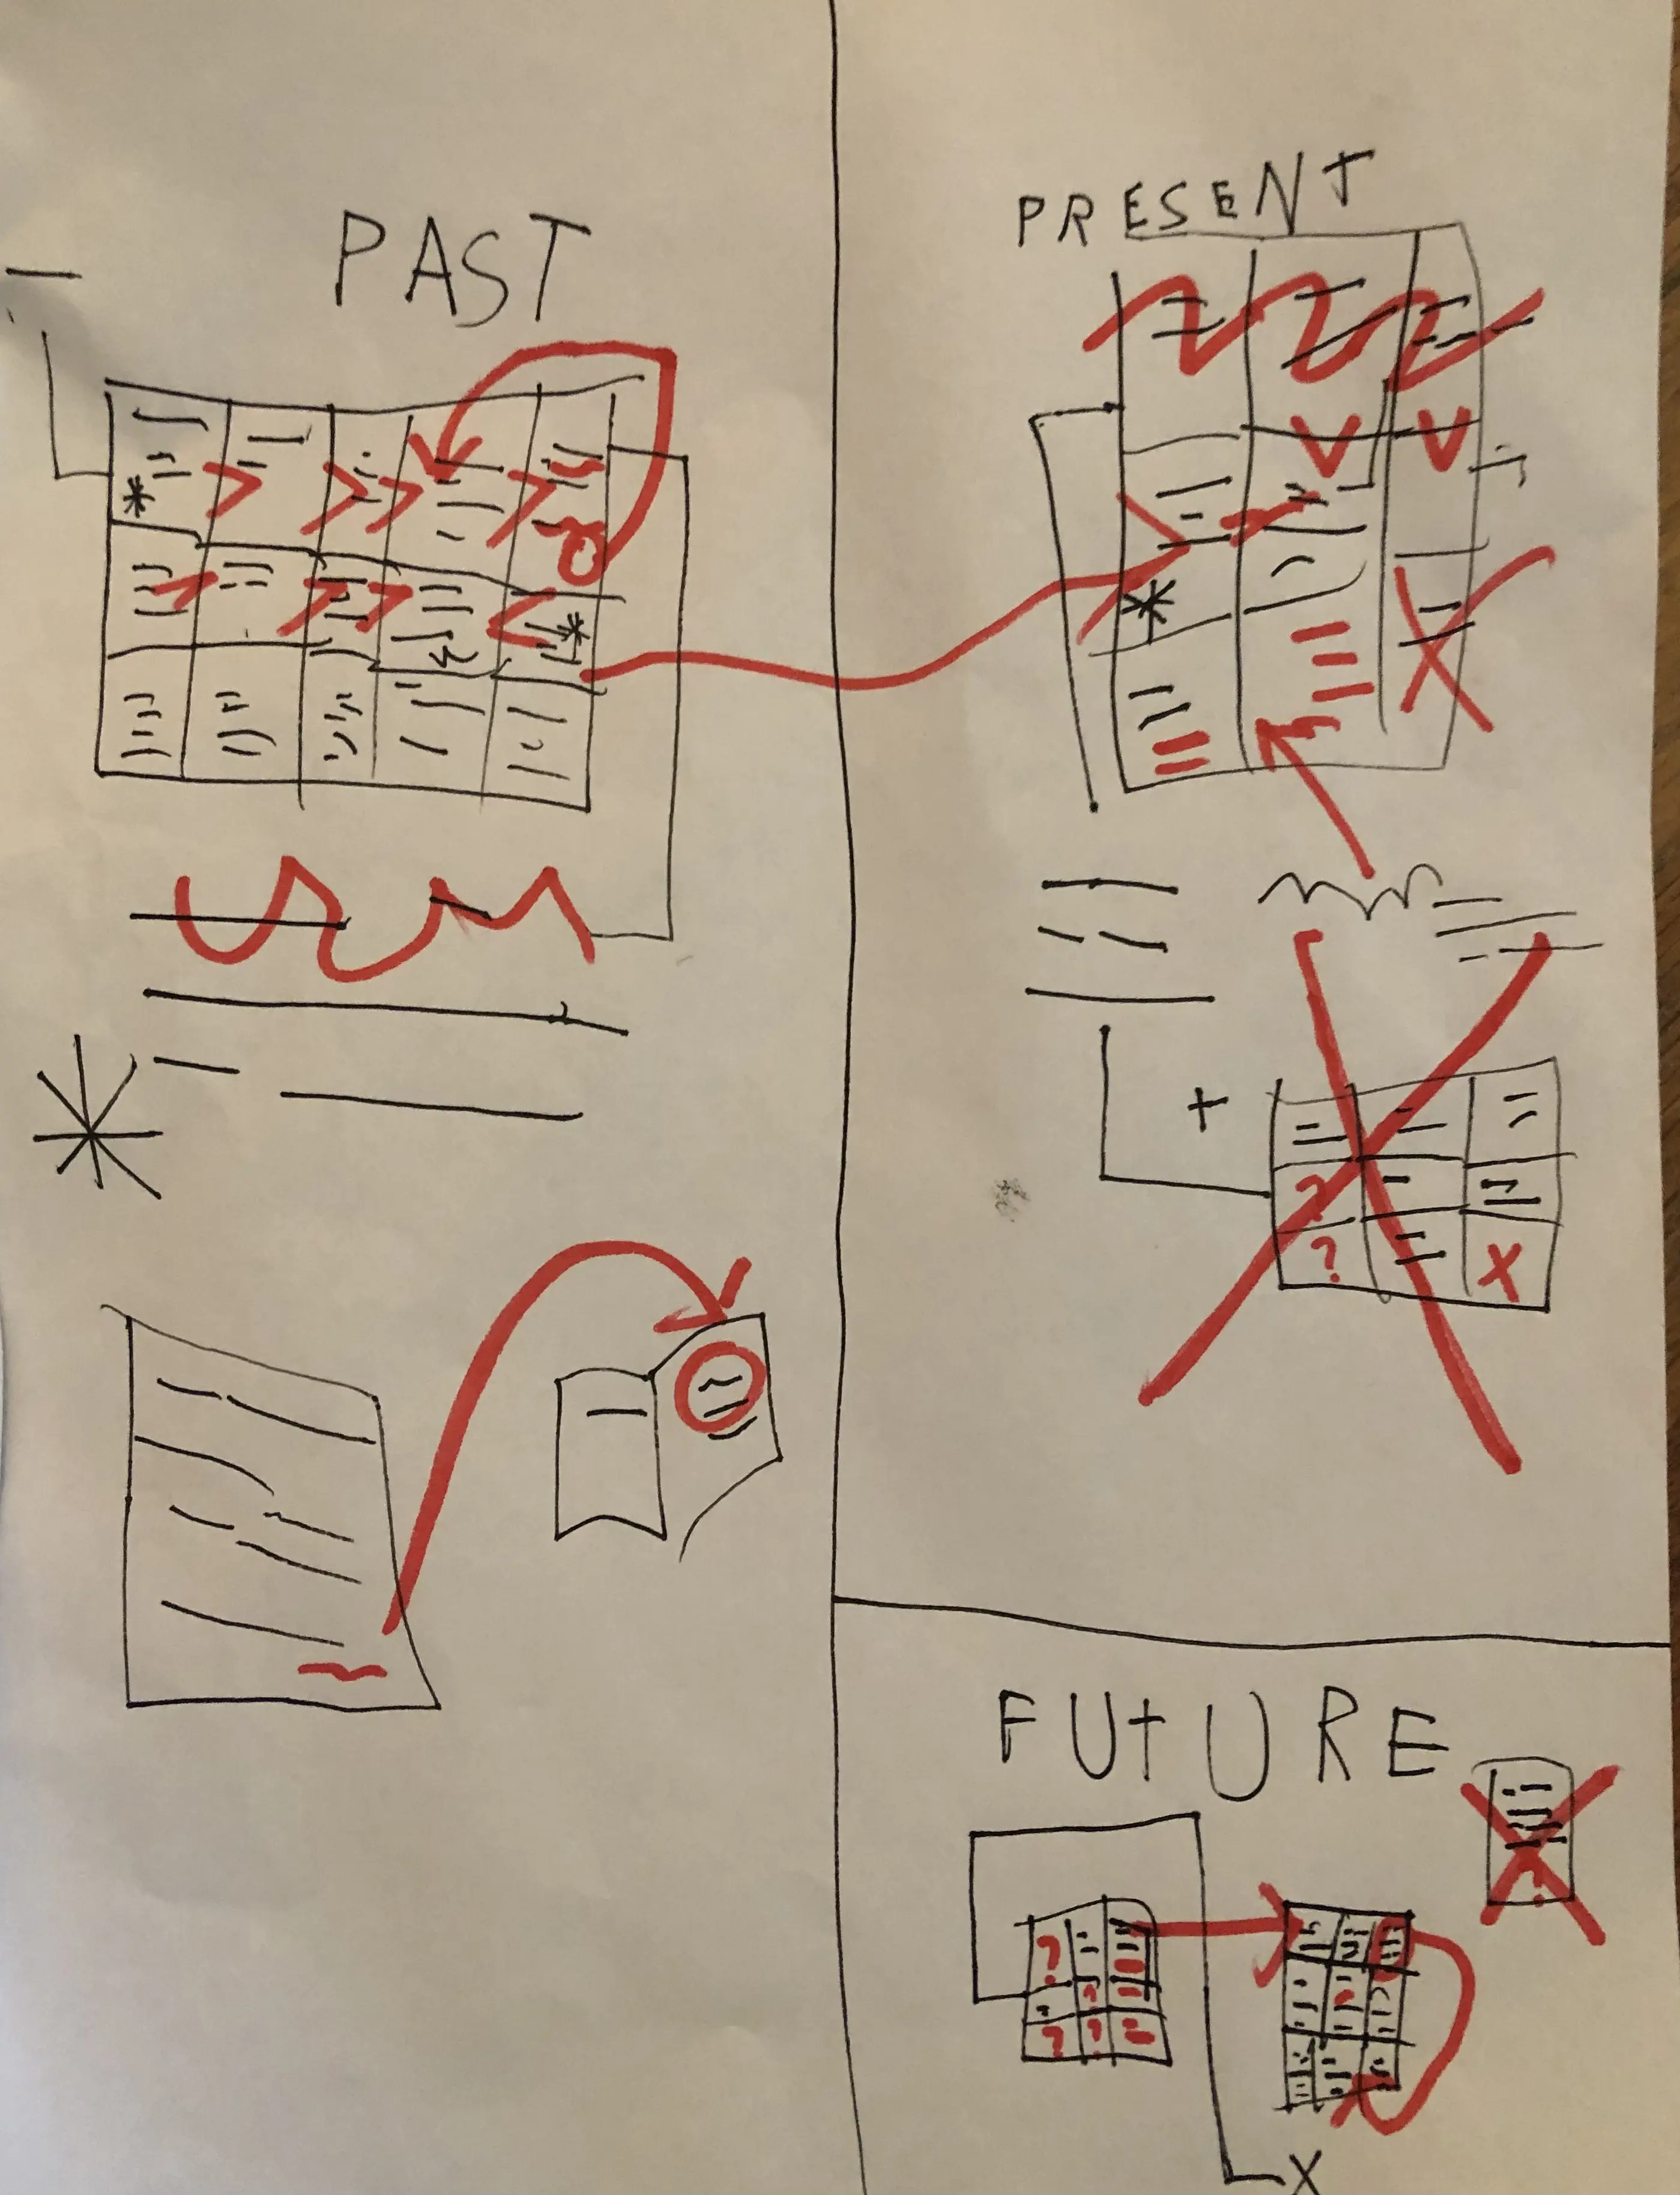 PAST
PRESENT
+
?
?
X
FUTURE
?
?
?
?
?
X